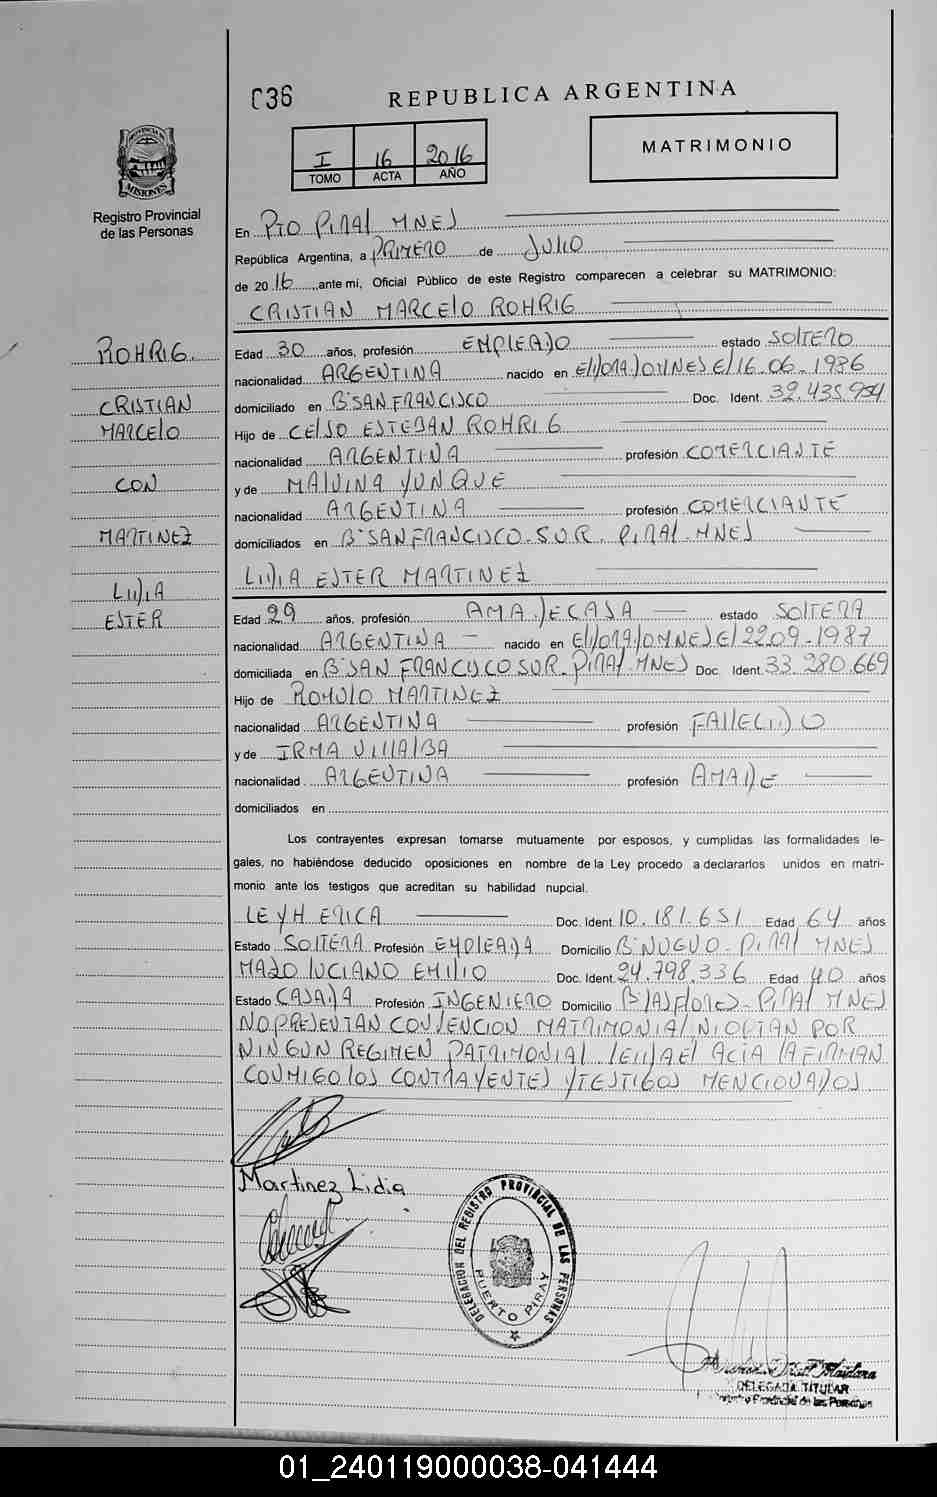 036
REPUBLICA ARGENTINA
MATRIMONIO
I 16 2016
TOMO ACTA AÑO
PROVINCIA DE
MISIONES
Registro Provincial
de las Personas
En PTO PIRAY MNES
República Argentina, a PRIMERO de JULIO
de 2016, ante mí, Oficial Público de este Registro comparecen a celebrar su MATRIMONIO:
CRISTIAN MARCELO ROHRIG
ROHRIG
CRISTIAN
MARCELO
CON
MARTINEZ
LIDIA
ESTER
Edad 30 años, profesión EMPLEADO estado SOLTERO
nacionalidad ARGENTINA nacido en ELDORADO MNES EL 16.06.1986
domiciliado en B° SAN FRANCISCO Doc. Ident. 32.435.954
Hijo de CELSO ESTEBAN ROHRIG
nacionalidad ARGENTINA profesión COMERCIANTE
y de MALVINA YUNQUE
nacionalidad ARGENTINA profesión COMERCIANTE
domiciliados en B° SAN FRANCISCO SUR. PIRAY MNES
LIDIA ESTER MARTINEZ
Edad 29 años, profesión AMA DE CASA estado SOLTERA
nacionalidad ARGENTINA nacido en ELDORADO MNES EL 22.09-1987
domiciliada en B° SAN FRANCISCO SUR. PIRAY MNES Doc. Ident. 33.280.669
Hijo de ROMULO MARTINEZ
nacionalidad ARGENTINA profesión FALLECIDO
y de IRMA VILLALBA
nacionalidad ARGENTINA profesión AMA DE
domiciliados en
Los contrayentes expresan tomarse mutuamente por esposos, y cumplidas las formalidades le-
gales, no habiéndose deducido oposiciones en nombre de la Ley procedo a declararlos unidos en matri-
monio ante los testigos que acreditan su habilidad nupcial.
LEYH ERICA Doc. Ident. 10.181.651 Edad 64 años
Estado SOLTERA Profesión EMPLEADA Domicilio B° NUEVO - PIRAY MNES
LUCIANO EMILIO Doc. Ident. 24.798.336 Edad 40 años
Estado CASADA Profesión INGENIERO Domicilio B° LAS FLORES - PIRAY MNES
NO PRESENTAN CONVENCION MATRIMONIAL NI OPTAN POR
NINGUN REGIMEN PATRIMONIAL LEIDA EL ACTA LA FIRMAN
CONMIGO LOS CONTRAYENTES Y TESTIGOS MENCIONADOS
Martinez Lidia
DELEGACION DEL REGISTRO PROVINCIAL DE LAS PERSONAS
PUERTO PIRAY
Maidana
DELEGADA TITULAR
Registro Provincial de las Personas
01_240119000038-041444